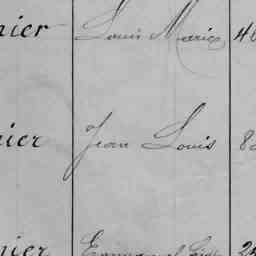 nier Louis Marie 40
nier Jean Louis 82
nier Emmanuel